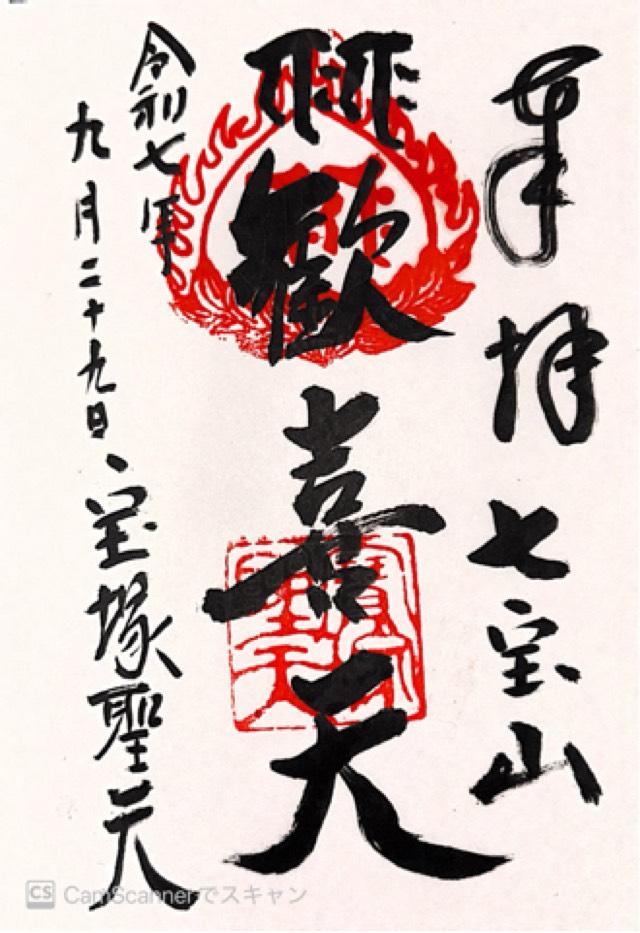 奉拝 七宝山
歓喜天
令和七年
九月二十九日
宝塚聖天
CS CamScannerでスキャン